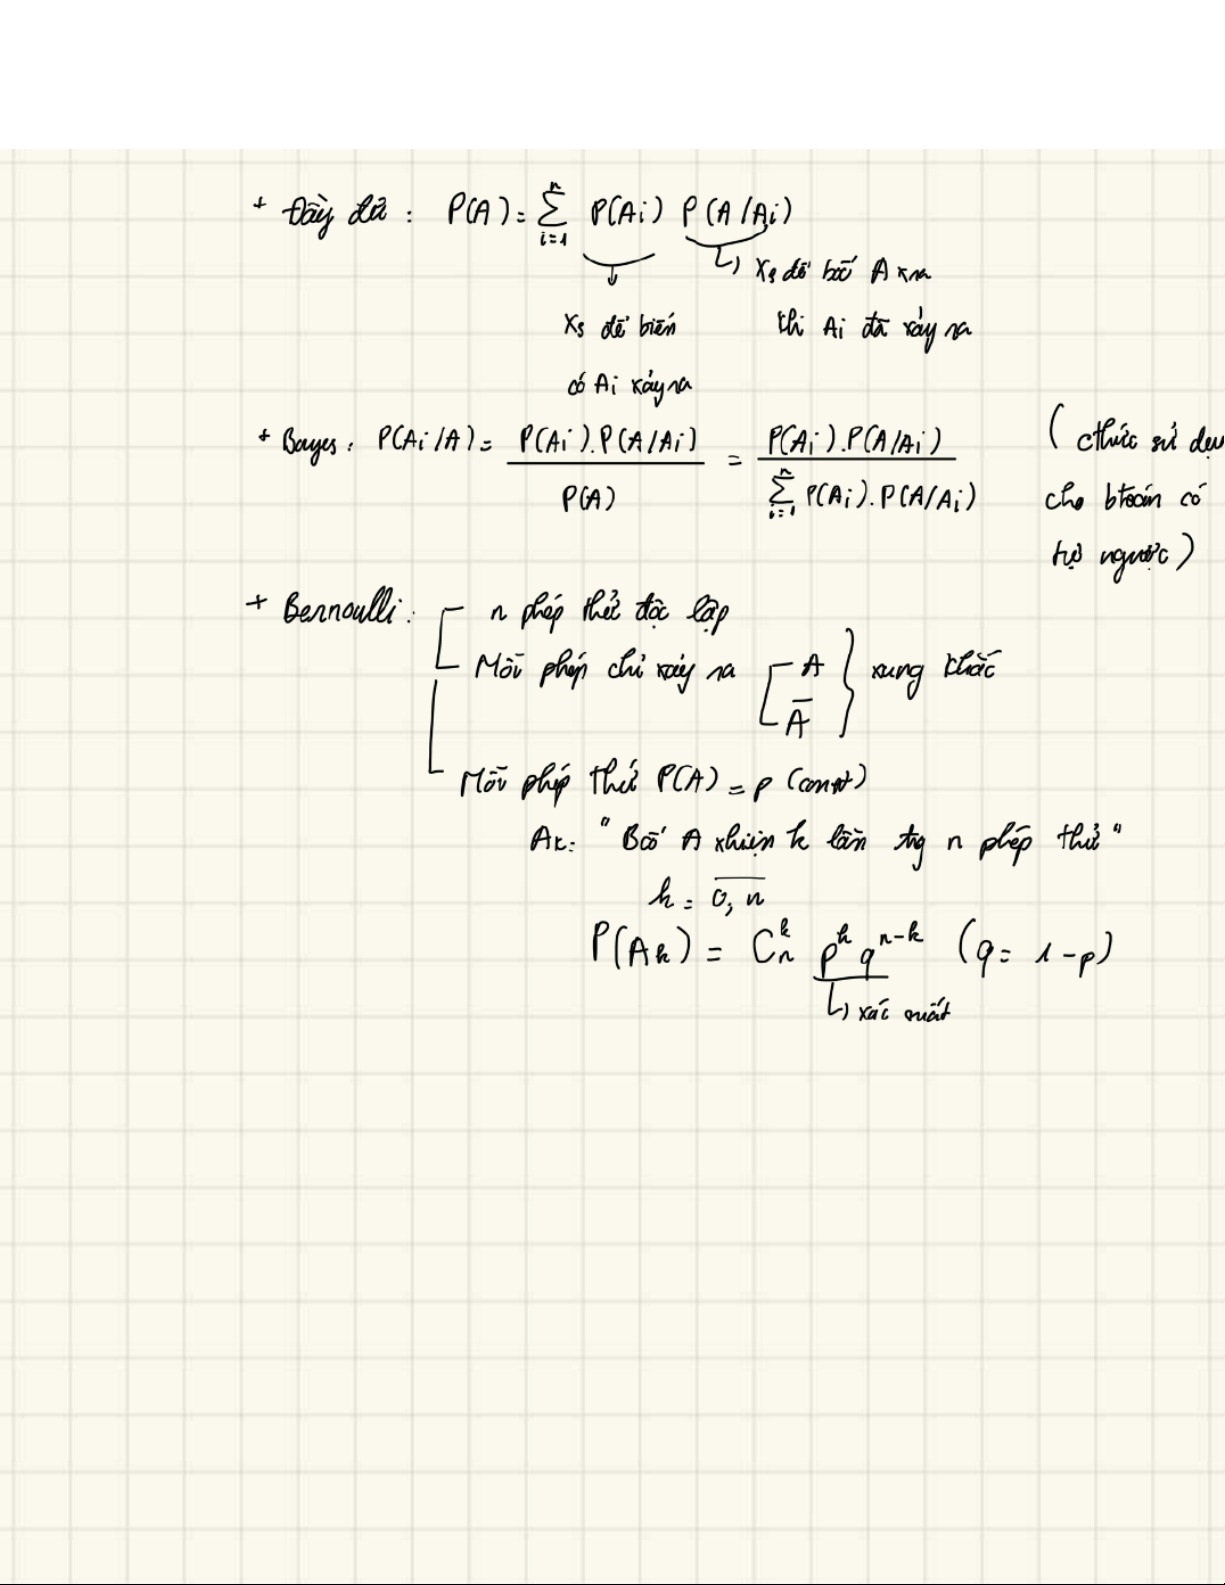 + Đầy đủ : P(A) = ∑_{i=1}^{n} P(Ai) P(A/Ai)
Xs để bcố A xra
Xs để biến khi Ai đã xảy ra
cố Ai xảy ra
+ Bayes : P(Ai/A) = P(Ai).P(A/Ai) / P(A) = P(Ai).P(A/Ai) / ∑_{i=1}^{n} P(Ai).P(A/Ai) ( cthức sử
cho btoán có
tự ngược )
+ Bernoulli : n phép thử độc lập
Mỗi phép chỉ xảy ra A } xung khắc
A̅
Mỗi phép thử P(A) = p (const)
Ak : " Bcố A xhiện k lần tg n phép thử "
k = 0, n
P(Ak) = C_n^k p^k q^{n-k} (q = 1 - p)
xác suất